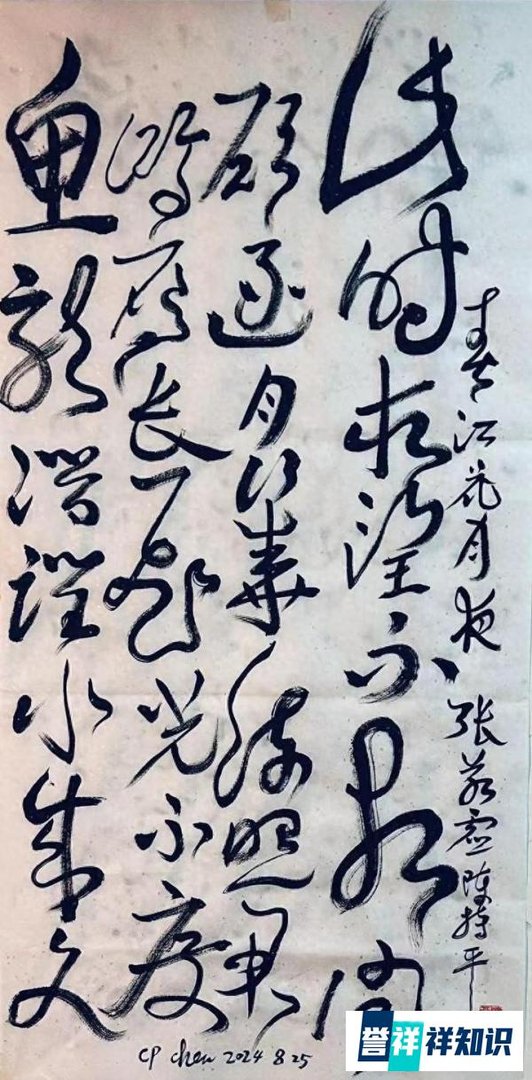 春江花月夜 张若虚 陈持平
此时相望不相闻
愿逐月華流照君
鸿雁长飞光不度
鱼龙潜跃水成文
CP chen 2024 8 25
誉祥祥知识